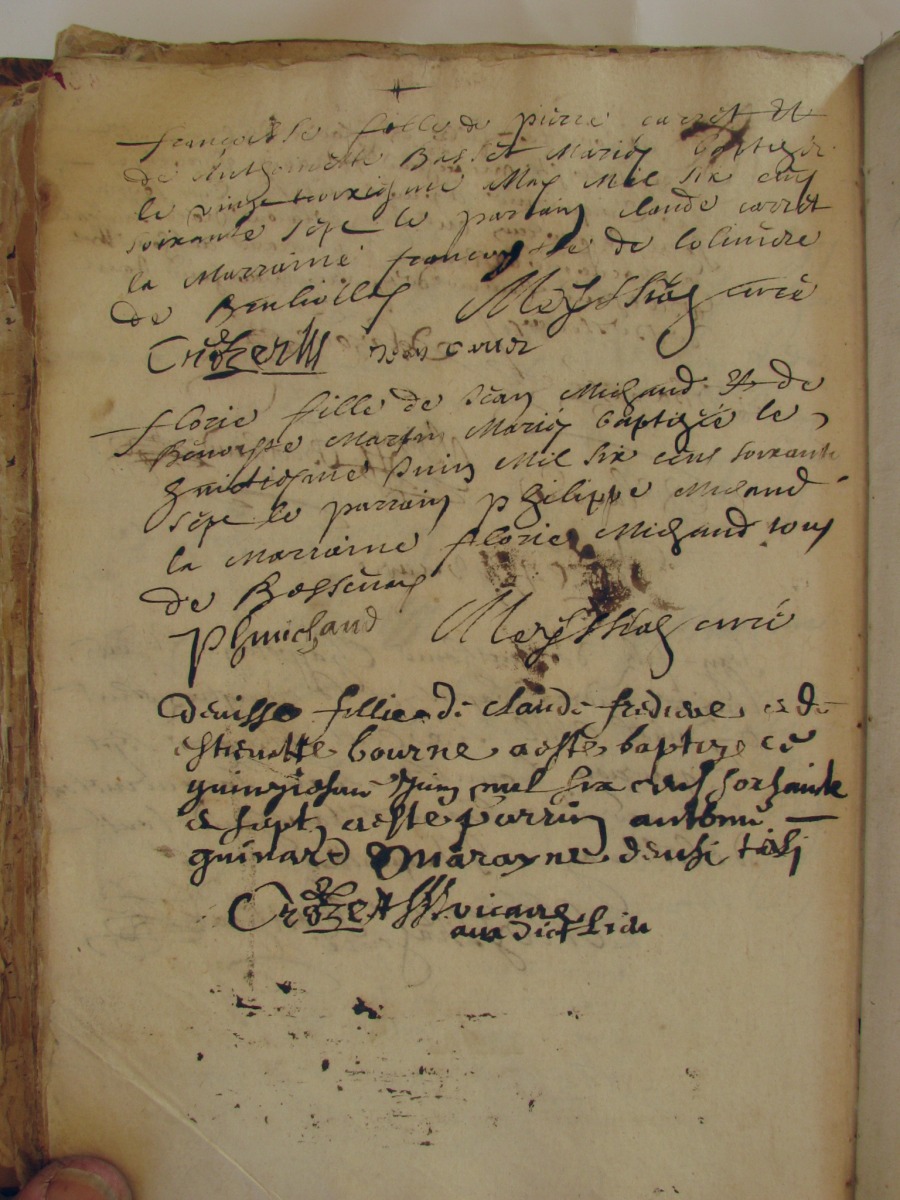 françoise fille de pierre carret et
de Anthoinette Basset Mariés baptizée
le vingt troizieme May Mil six cens
soixante sept le parrain claude carret
la Marraine françoyse de
de
curé
Crozet
florie fille de Jean Michaud et de
Benoiste Martin Mariés baptizée le
huictiesme Juin Mil six cens soixante
sept le parrain philippe Michaud
la Marraine florie Michaud tous
de
phmichaud curé
denisse fillie de claude frediere et de
estienette bourne a este baptize ce
Juin mil six cens soisante
e sept a este parrin antoine
guinard marayne
Crozet vicaire
au dict lieu